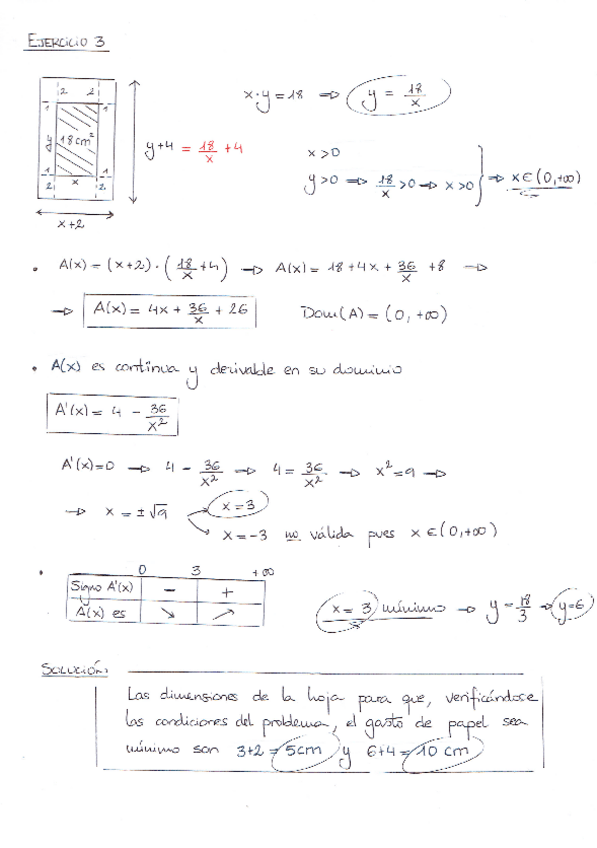 EJERCICIO 3
2 2
1 1
y 18cm²
1 1
2 x 2
x+2
y+4 = 18/x + 4
x·y = 18 ⇒ y = 18/x
x>0
y>0 ⇒ 18/x >0 ⇒ x>0 } ⇒ x∈(0,+∞)
• A(x) = (x+2)·(18/x+4) ⇒ A(x) = 18+4x+36/x+8 ⇒
⇒ A(x) = 4x + 36/x + 26 Dom(A) = (0,+∞)
• A(x) es continua y derivable en su dominio
A'(x) = 4 - 36/x²
A'(x)=0 ⇒ 4 - 36/x² ⇒ 4 = 36/x² ⇒ x²=9 ⇒
⇒ x = ±√9 x=3
x=-3 no válida pues x∈(0,+∞)
• 0 3 +∞
Signo A'(x) - +
A(x) es ↘ ↗
x=3 mínimo ⇒ y = 18/3 ⇒ y=6
SOLUCIÓN:
Las dimensiones de la hoja para que, verificándose
las condiciones del problema, el gasto de papel sea
mínimo son 3+2 = 5cm y 6+4 = 10 cm